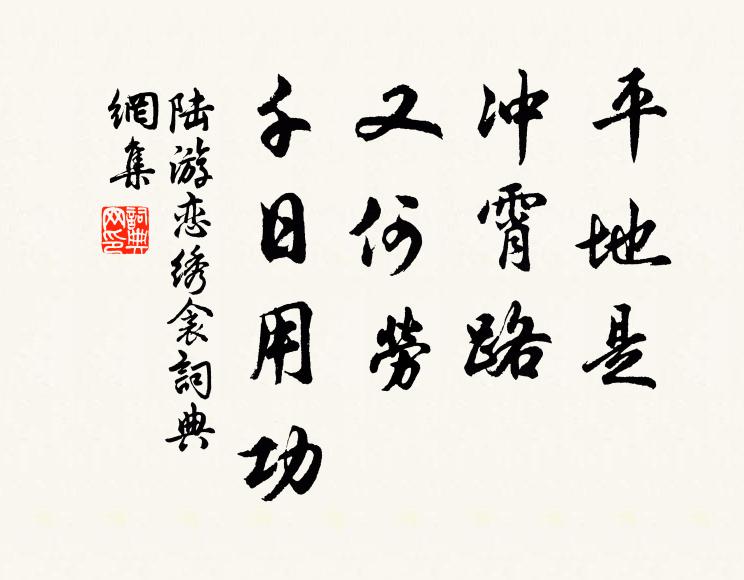 平地是
冲霄路
又何劳
千日用功
陆游恋绣衾詞典
網集
詞典
网印